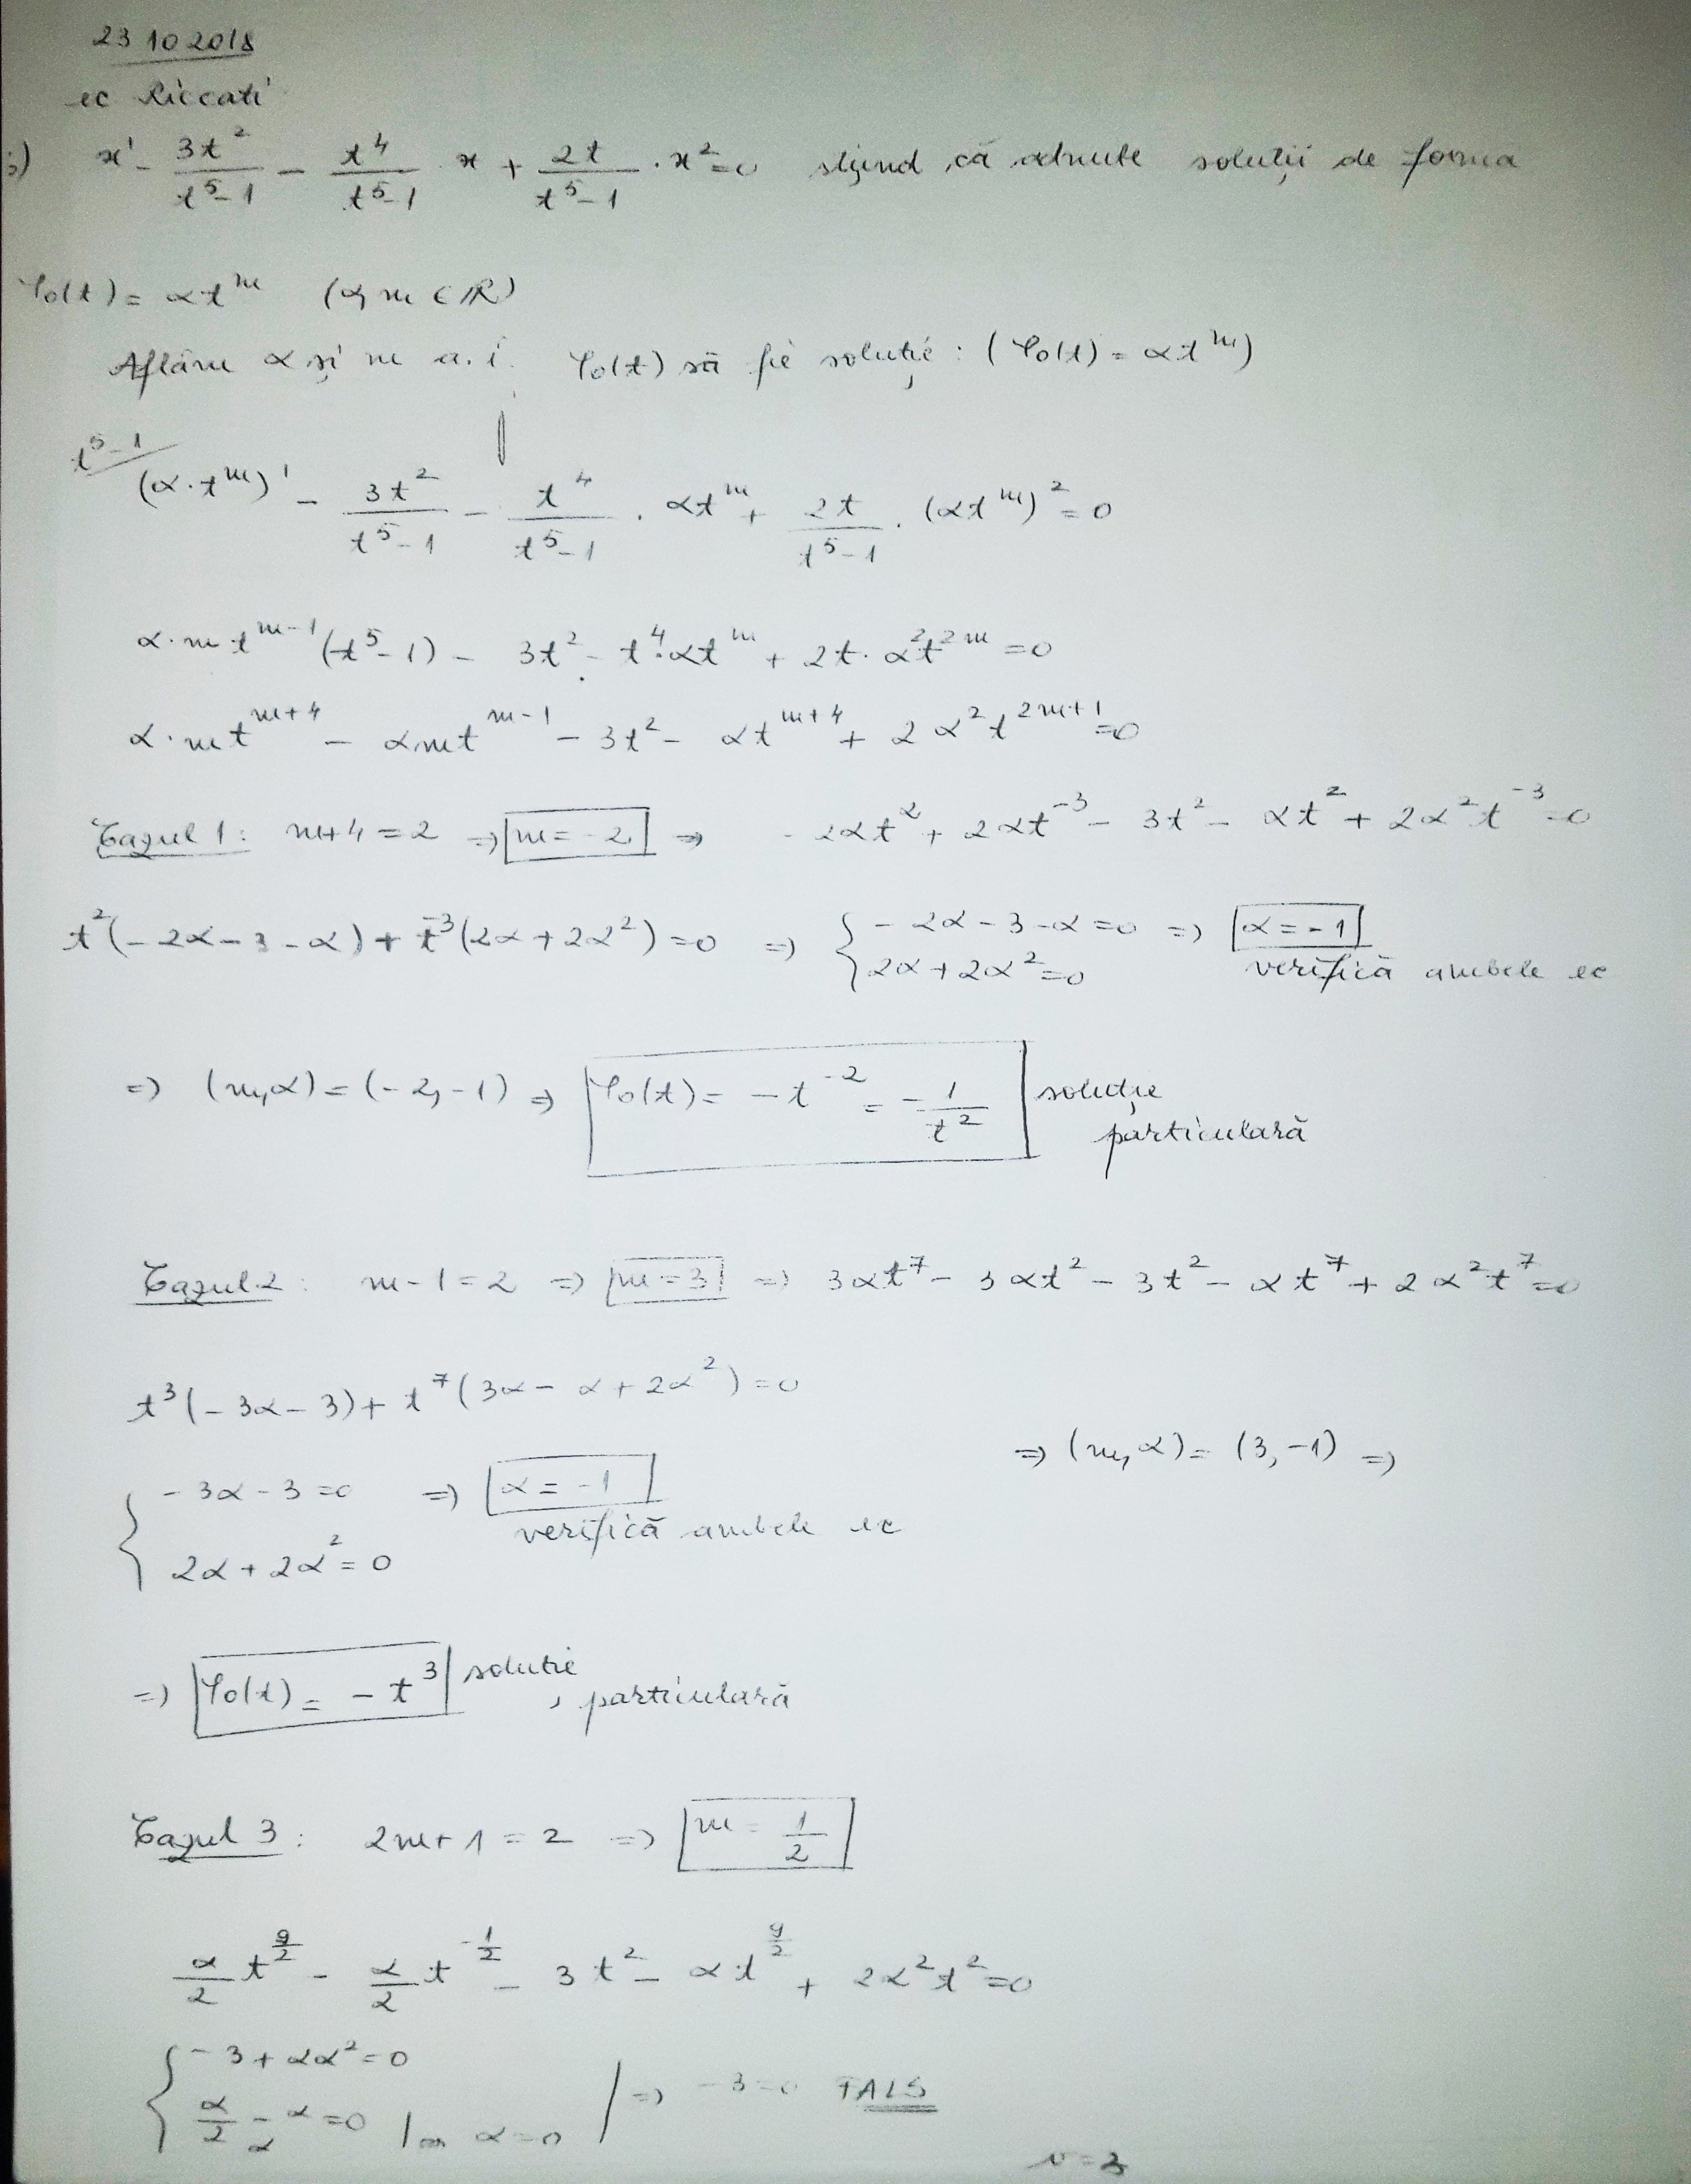 23 10 2018
ec Riccati
x' - 3t²/(t⁵-1) - t⁴/(t⁵-1) · x + 2t/(t⁵-1) · x² = 0 știind că admite soluții de forma
φ₀(t) = αt^m (α, m ∈ ℝ)
Aflăm α și m a.î. φ₀(t) să fie soluție: (φ₀(t) = αt^m)
t⁵-1
(α·t^m)' - 3t²/(t⁵-1) - t⁴/(t⁵-1) · αt^m + 2t/(t⁵-1) · (αt^m)² = 0
α·m t^(m-1) (t⁵-1) - 3t² - t⁴·αt^m + 2t·α²t^(2m) = 0
α·mt^(m+4) - α·mt^(m-1) - 3t² - αt^(m+4) + 2α²t^(2m+1) = 0
Cazul 1: m+4 = 2 => m = -2 => -2αt² + 2αt^(-3) - 3t² - αt² + 2α²t^(-3) = 0
t²(-2α-3-α) + t^(-3)(2α+2α²) = 0 => { -2α-3-α=0 => α = -1
2α+2α²=0 verifică ambele ec
=> (m,α) = (-2,-1) => φ₀(t) = -t^(-2) = -1/t² soluție
particulară
Cazul 2: m-1 = 2 => m = 3 => 3αt⁷ - 3αt² - 3t² - αt⁷ + 2α²t⁷ = 0
t³(-3α-3) + t⁷(3α-α+2α²) = 0
=> (m,α) = (3,-1) =>
{ -3α-3=0 => α = -1
verifică ambele ec
2α+2α²=0
=> φ₀(t) = -t³ soluție
particulară
Cazul 3: 2m+1 = 2 => m = 1/2
α/2 t^(9/2) - α/2 t^(-1/2) - 3t² - αt^(9/2) + 2α²t² = 0
{ -3+2α²=0
α/2 - α = 0 α=0 | => -3=0 FALS